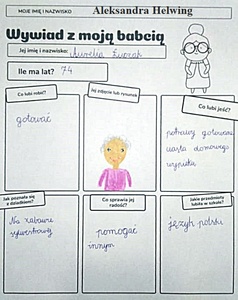 MOJE IMIĘ I NAZWISKO Aleksandra Helwing
Wywiad z moją babcią
Jej imię i nazwisko: Aurelia
Ile ma lat? 74
Co lubi robić?
gotować
Jej zdjęcie lub rysunek
Co lubi jeść?
potrawy gotowane
ciasta domowego
wypieku
Jak poznała się z dziadkiem?
Na zabawie
sylwestrowej
Co sprawia jej radość?
pomagać
innym
Jakie przedmioty lubiła w szkole?
język polski